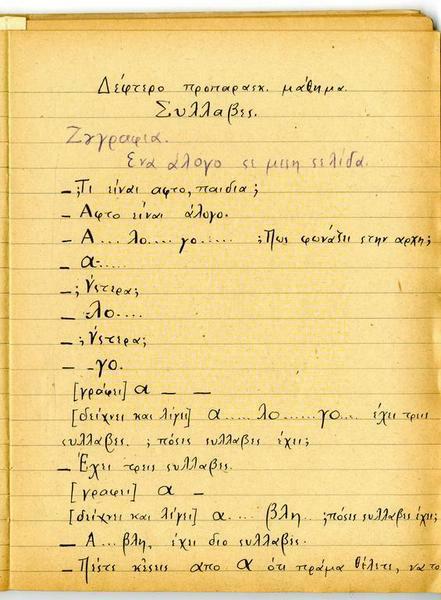 Δέφτερο προπαρασκ. μάθημα.
Συλλαβες.
Ζγγραφια.
Ενα άλογο σε μιση σελίδα.
– ;Τι είναι αφτο, παιδια;
– Αφτο είναι άλογο.
– Α... λο.... γο..... ;Πως φωνάζει στην αρχη;
– α.....
– ;ύστερα;
– λο....
– ;ύστερα;
– γο.
[γράφει] α – –
[δείχνει και λέγει] α..... λο......γο.... έχει τρεις
συλλαβες. ;πόσες συλλαβες έχει;
– Έχει τρεις συλλαβες.
[γραφει] α –
[δείχνει και λέγει] α.... βλη.. ;πόσες συλλαβες έχει;
– Α... βλη, έχει διο συλλαβες.
– Πέστε κ' εσεις απο α ότι πράμα θέλετε, να το